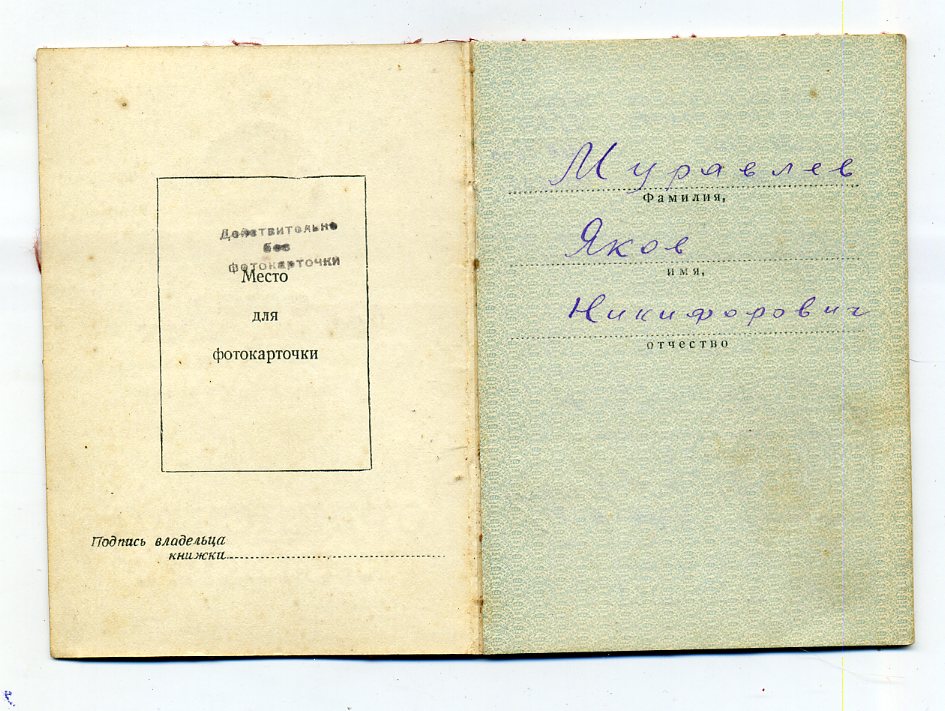 Действительно
без
фотокарточки
Место
для
фотокарточки
Подпись владельца
книжки
Муравлев
Фамилия,
Яков
имя,
Никифорович
отчество